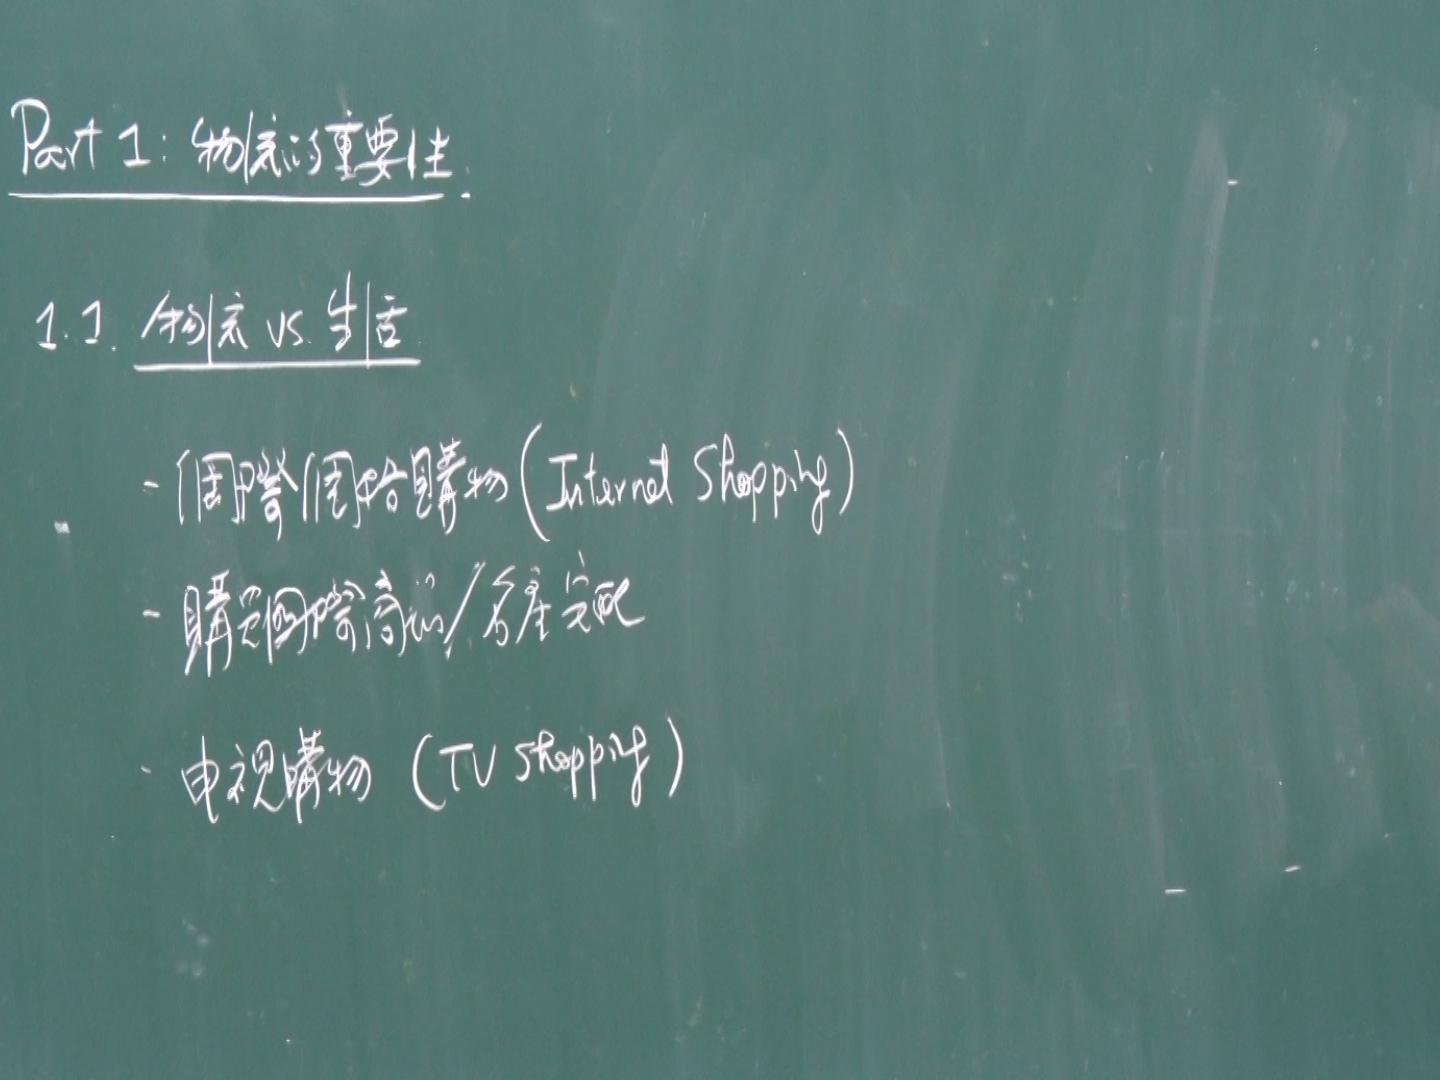 Part 1: 物流的重要性
1.1. 物流 vs. 生活
- 國際網路購物 (Internet Shopping)
- 購買國際商品/名產宅配
- 電視購物 (TV Shopping)